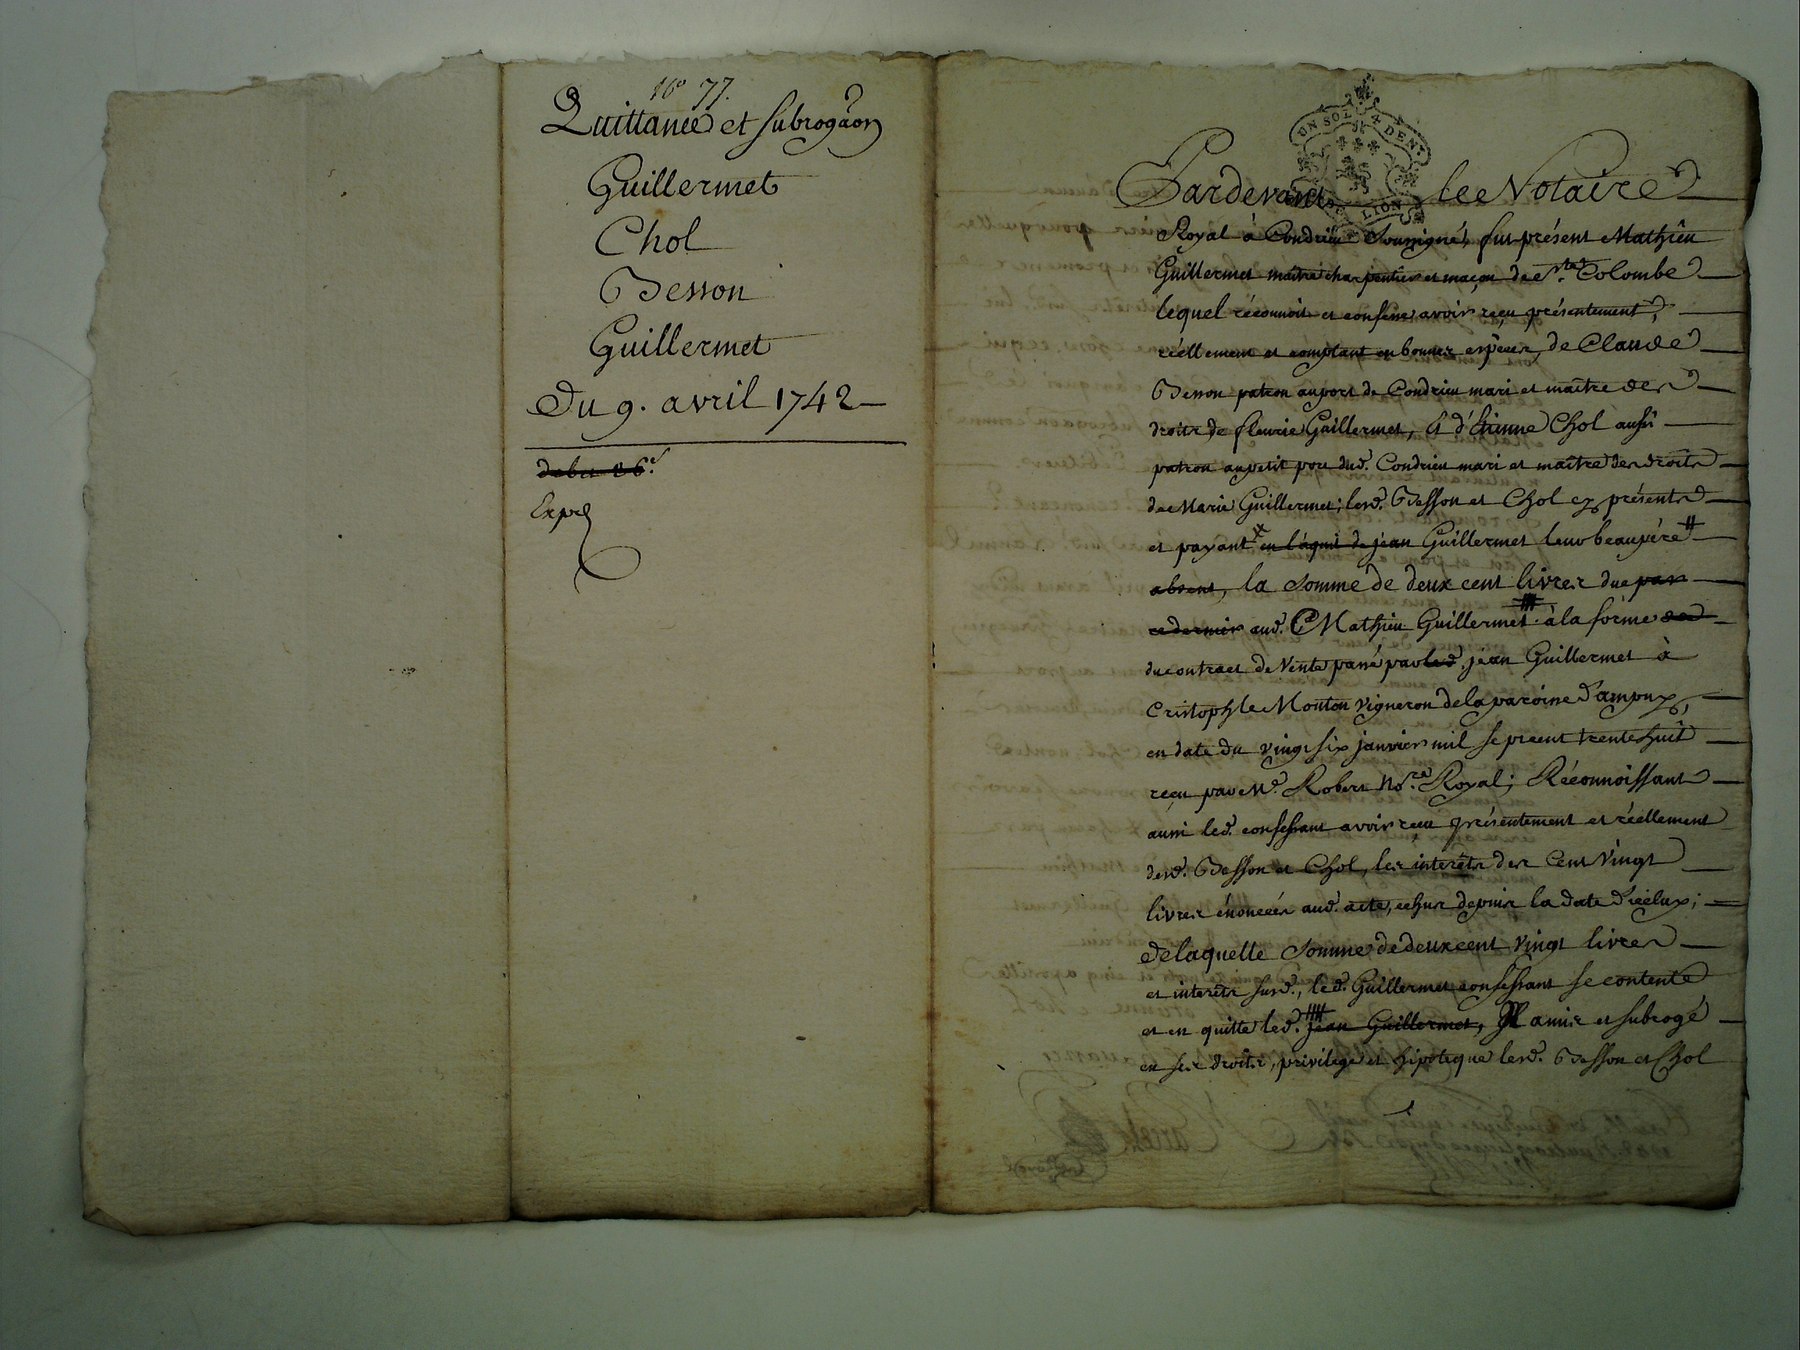 No 77.
Quittance et subrogâon
Guillermet
Chol
Besson
Guillermet
Du 9. avril 1742
Expé
UN SOL 4 DEN.rs
LION
Pardevant le Notaire
Royal à Condrieu Soussigné, fut présent Mathieu
Guillermet maitre charpentier et maçon de Ste Colombe
lequel réconnoit et confesse avoir reçu présentement,
réellement et comptant en bonnes espèces, de Claude
Besson patron au port de Condrieu mari et maître des
droits de fleurie Guillermet, & d'Etienne Chol aussi
patron au petit port dud. Condrieu mari et maître des droits
de Marie Guillermet; lesd. Besson et Chol cy présents
et payant en l'aquit de jean Guillermet leur beaupére
absent, la somme de deux cent livres due par
ce dernier aud. Mathieu Guillermet à la forme
du contract de Vente passé par led. jean Guillermet à
Cristophle Mouton vigneron de la paroisse d'ampuy,
en date du vingt six janvier mil sept cent trente huit
reçu par Me. Robert No.re Royal; Réconnoissant
aussi led. confessant avoir reçu présentement et réellement
desd. Besson et Chol, les interêts des Cent Vingt
livres énoncées aud. acte, echus depuis la date d'icelux;
de laquelle somme de deux cent vingt livres
et interêts susd., led. Guillermet confessant se contente
et en quitte led. jean Guillermet, & a mis et subrogé
en ses droits, privilége et hipoteque lesd. Besson et Chol